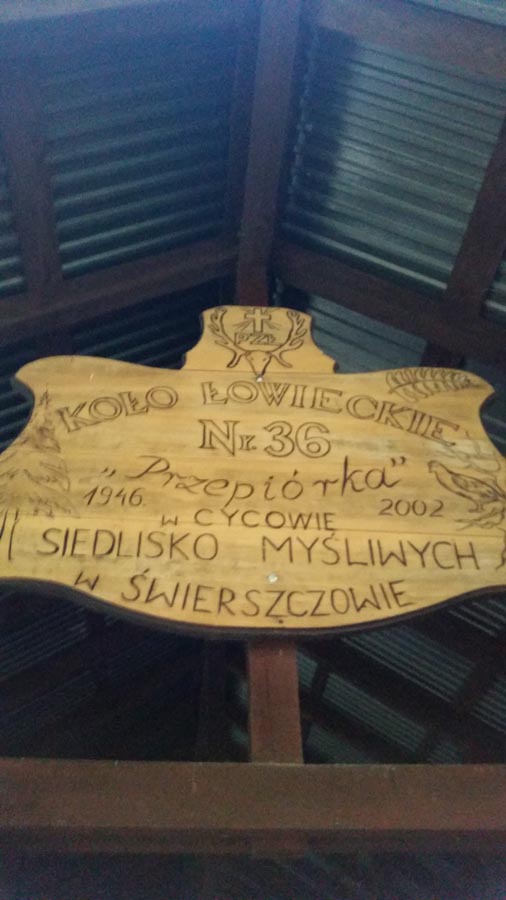 PZŁ
KOŁO ŁOWIECKIE
Nr. 36
„Przepiórka”
1946. 2002
w CYCOWIE
SIEDLISKO MYŚLIWYCH
w ŚWIERSZCZOWIE